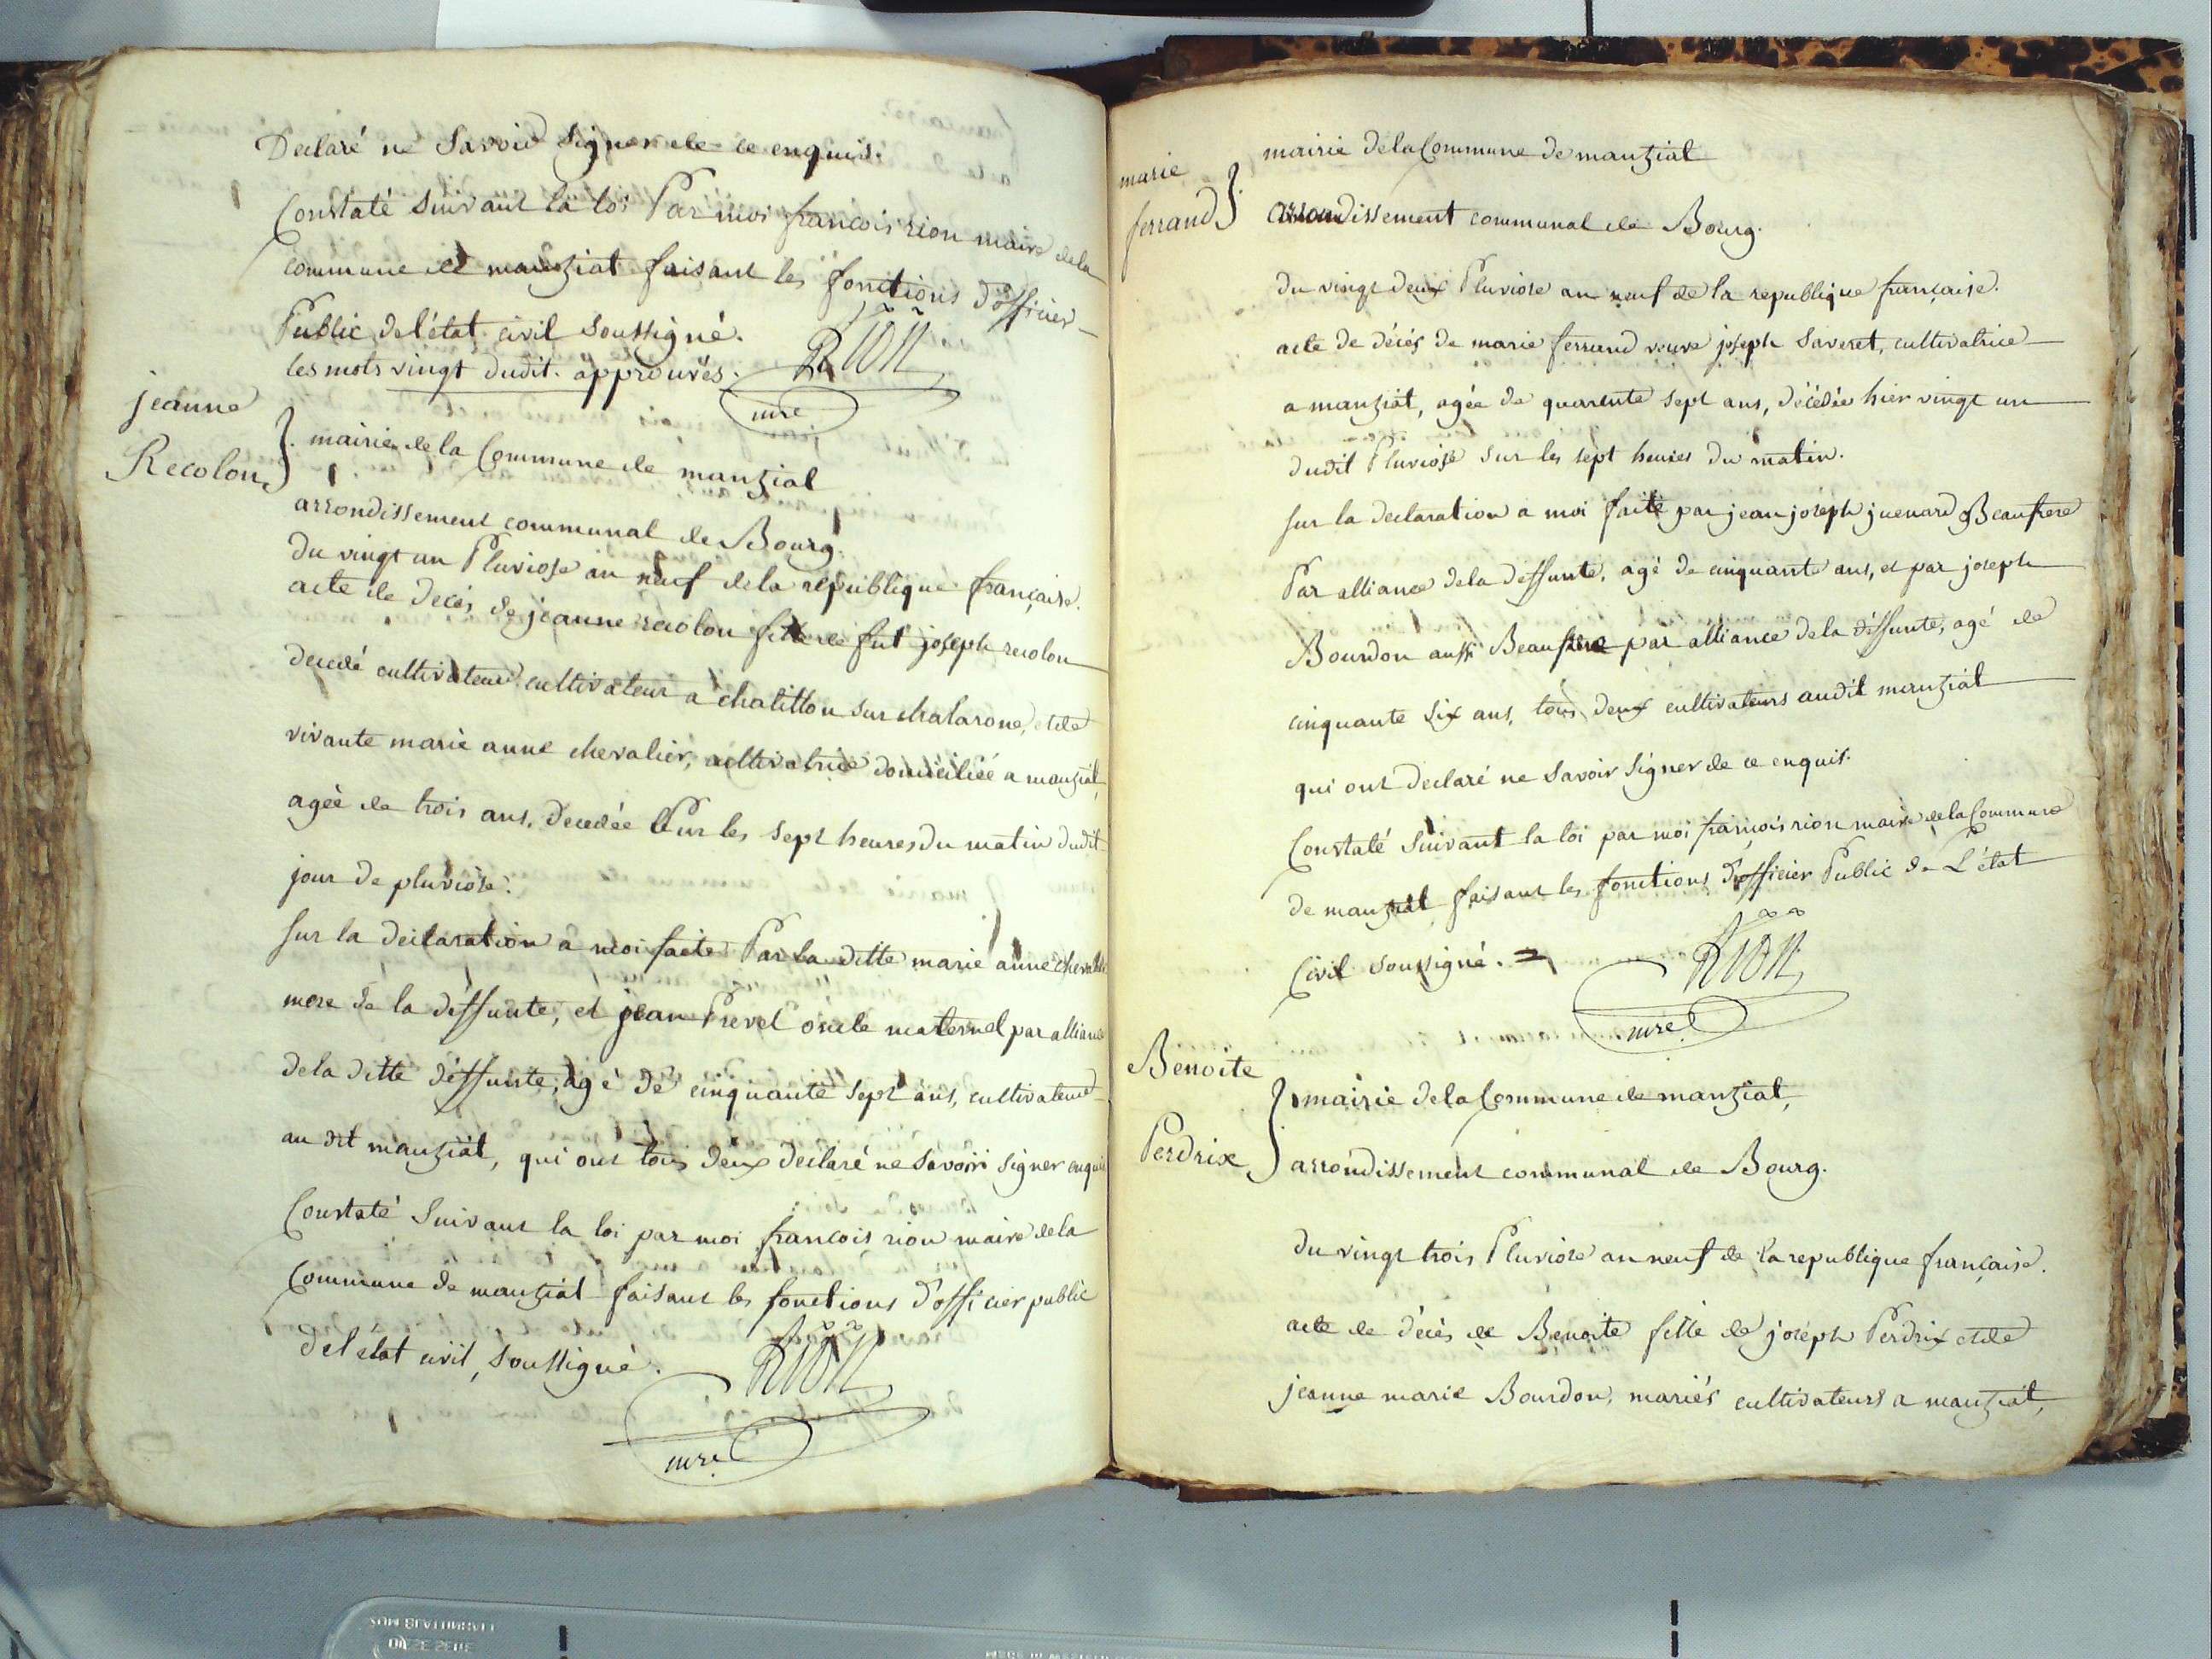 Declaré ne Savoir Signer de ce enquis.
Constaté Suivant la loi Par moi francois rion maire de la
commune de manziat faisant les fonctions d'officier
Public de l'état civil Soussigné.
les mots vingt dudit. approuvés.
Rion
mre
jeanne
Recolon
mairie de la Commune de manziat
arrondissement communal de Bourg.
du vingt un Pluviose an neuf de la republique française.
acte de decés de jeanne recolon fille de fut joseph recolon
decedé cultivateur cultivateur a chatillon sur chalarone, et de
vivante marie anne chevalier, cultivatrice domiciliée a manziat,
agée de trois ans, decedée sur les sept heures du matin dudit
jour de pluviose.
Sur la declaration a moi faite Par la ditte marie anne chevalier
mere de la deffunte, et jean Prevel oncle maternel par alliance
de la ditte deffunte, agé de cinquante sept ans, cultivateur
au dit manziat, qui ont tous deux declaré ne savoir signer enquis
Constaté Suivant la loi par moi francois rion maire de la
Commune de manziat faisant les fonctions d'officier public
de l'état civil, soussigné.
Rion
mre
marie
ferrand
mairie de la Commune de manziat
arrondissement communal de Bourg.
du vingt deux Pluviose an neuf de la republique française.
acte de décés de marie ferrand veuve joseph Saveret, cultivatrice
a manziat, agée de quarente sept ans, décédée hier vingt un
dudit Pluviose sur les sept heures du matin.
sur la declaration a moi faite par jean joseph juenard Beaufrere
Par alliance de la deffunte, agé de cinquante ans, et par joseph
Bourdon aussi Beaufrere par alliance de la deffunte, agé de
cinquante six ans, tous deux cultivateurs audit manziat
qui ont declaré ne savoir signer de ce enquis.
Constaté Suivant la loi par moi francois rion maire de la Commune
de manziat faisant les fonctions d'officier Public de L'état
Civil soussigné.
Rion
mre
Benoite
Perdrix
mairie de la Commune de manziat,
arrondissement communal de Bourg.
du vingt trois Pluviose an neuf de la republique française.
acte de décés de Benoite fille de joseph Perdrix et de
jeanne marie Bourdon, mariés cultivateurs a manziat,